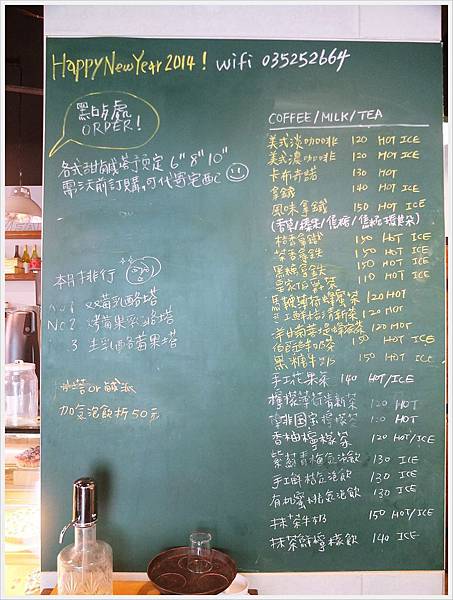 HAPPY New Year 2014! wifi 035252664
點餐處
ORDER!
各式甜鹹塔預定 6" 8" 10"
需3天前訂購,可代寄宅配
本月排行
No 2 烤莓果乳酪塔
3 生乳酪莓果塔
加氣泡飲折50元
COFFEE/MILK/TEA
美式淡咖啡 120 HOT ICE
美式濃咖啡 120 HOT ICE
卡布奇諾 130 HOT
拿鐵 140 HOT ICE
風味拿鐵 150 HOT ICE
桂香拿鐵 150 HOT ICE
茶香拿鐵 150 HOT ICE
黑糖拿鐵 150 HOT ICE
皇家伯爵茶 110 HOT ICE
120 HOT
120 HOT
120 HOT
伯爵鮮奶茶 150 HOT ICE
黑糖牛奶 150 HOT ICE
手工花果茶 140 HOT/ICE
檸檬薄荷清新茶 120 HOT
120 HOT
香柚檸檬茶 120 HOT/ICE
紫蘇青梅氣泡飲 130 ICE
手工鮮桔氣泡飲 130 ICE
有机蜜桃氣泡飲 130 ICE
抹茶牛奶 150 HOT/ICE
抹茶鮮檸檬飲 140 ICE